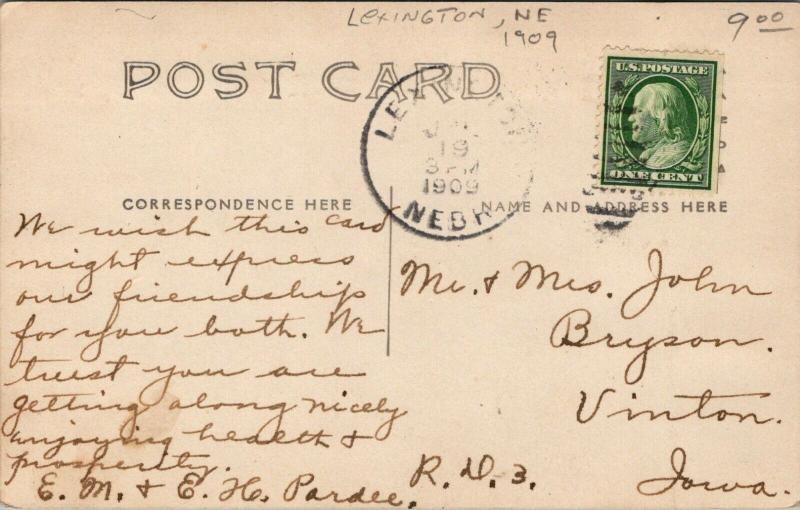 LEXINGTON, NE
1909
9.00
POST CARD
U.S. POSTAGE
ONE CENT
LEXINGTON
19
3 PM
1909
NEBR
CORRESPONDENCE HERE
NAME AND ADDRESS HERE
We wish this card
might express
our friendship
for you both. We
trust you are
getting along nicely
enjoying health &
prosperity.
E. M. & E. H. Pardee.
Mr. & Mrs. John
Bryson.
Vinton.
R. D. 3. Iowa.